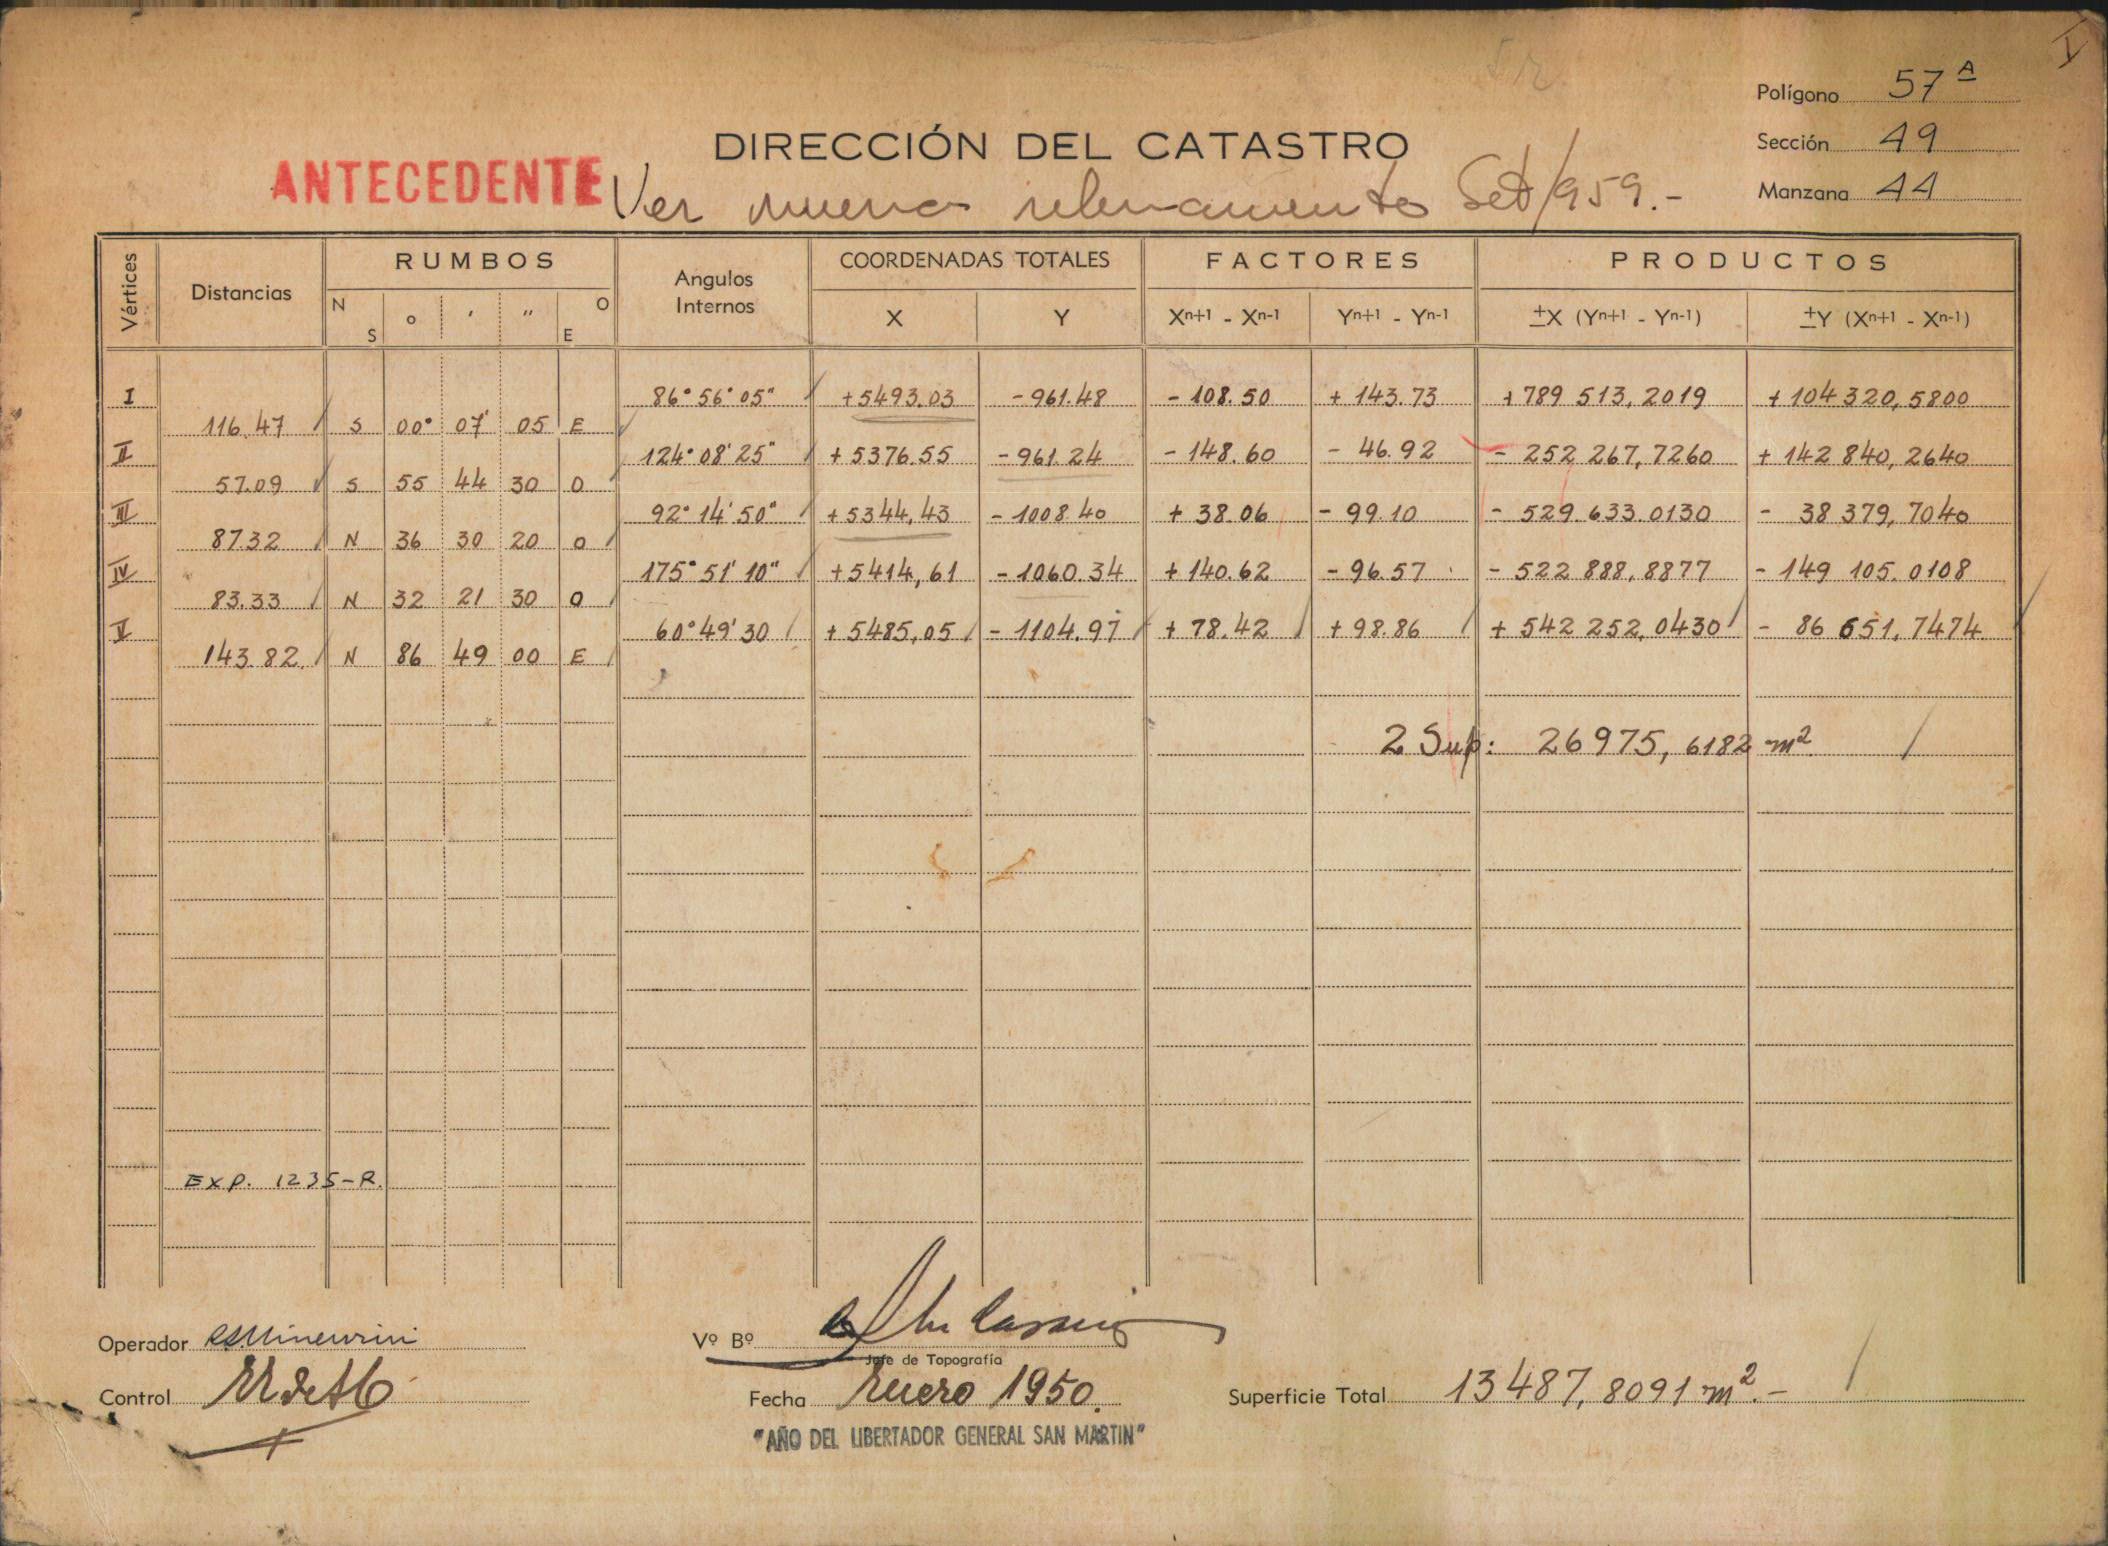 I
Polígono 57 A
DIRECCIÓN DEL CATASTRO
Sección 49
ANTECEDENTE Ver nuevo relevamiento Set/959.-
Manzana 44
Vértices Distancias RUMBOS Angulos Internos COORDENADAS TOTALES FACTORES PRODUCTOS
N S o ' " O E X Y Xn+1 - Xn-1 Yn+1 - Yn-1 ±X (Yn+1 - Yn-1) ±Y (Xn+1 - Xn-1)
I 86° 56' 05" +5493.03 -961.48 - 108.50 + 143.73 +789 513,2019 + 104 320,5800
116.47 S 00° 07' 05 E
II 124° 08' 25" + 5376.55 -961.24 - 148.60 - 46.92 - 252 267,7260 + 142 840,2640
57.09 S 55 44 30 O
III 92° 14' 50" +5344,43 - 1008.40 + 38.06 - 99.10 - 529.633.0130 - 38 379,7040
87.32 N 36 30 20 O
IV 175° 51' 10" +5414,61 -1060.34 + 140.62 - 96.57 - 522 888,8877 - 149 105.0108
83.33 N 32 21 30 O
V 60° 49' 30 + 5485,05 - 1104.97 + 78.42 + 98.86 + 542 252,0430 - 86 651,7474
143.82 N 86 49 00 E
2 Sup: 26975,6182 m²
EXP. 1235-R.
Operador
Vº Bº
Jefe de Topografía
Control
Fecha Enero 1950.
Superficie Total 13487,8091 m².-
"AÑO DEL LIBERTADOR GENERAL SAN MARTIN"